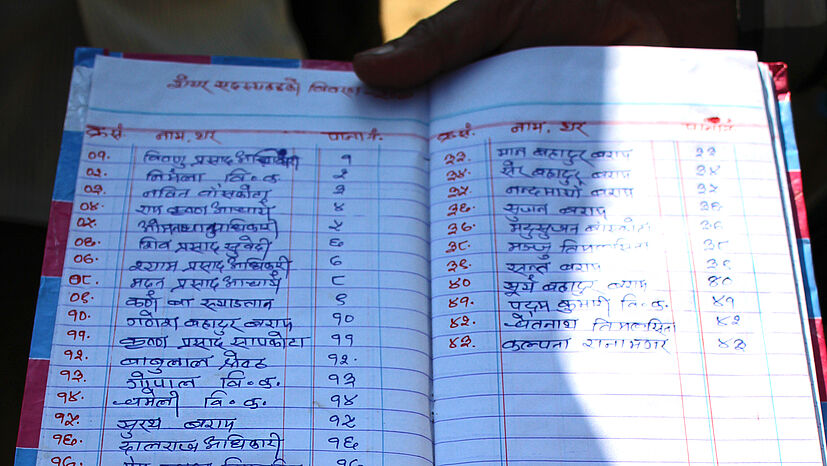 शेयर सदस्यहरुको विवरण
क्र.सं. नाम, थर पाना नं.
०१. विष्णु प्रसाद अधिकारी १
०२. निर्मला वि. क. २
०३. नविन बाँसकोटा ३
०४. राम कृष्ण आचार्य ४
०५. अधिकारी ५
०६. शिव प्रसाद सुवेदी ६
०७. श्याम प्रसाद अधिकारी ७
०८. मदन प्रसाद आचार्य ८
०९. कर्ण बा ९
१०. गणेश बहादुर बराम १०
११. कृष्ण प्रसाद सापकोटा ११
१२. बाबुलाल श्रेष्ठ १२.
१३. गोपाल वि. क. १३
१४. चमेली वि. क. १४
१५. सुरथ बराम १५
१६. दालराज अधिकारी १६
१७. १७
क्र.सं. नाम, थर पाना नं.
३३. मान बहादुर बराम ३३
३४. सेर बहादुर बराम ३४
३५. नन्दमाया बराम ३५
३६. सुजन बराम ३६
३७. मधुसुजन बाँसकोटा ३७
३८. मञ्जु तिमल्सिना ३८
३९. सन्त बराम ३९
४० सूर्य बहादुर बराम ४०
४१. पदम कुमारी वि. क. ४१
४२. चेतनाथ तिमल्सिना ४२
४३. कल्पना रानामगर ४३